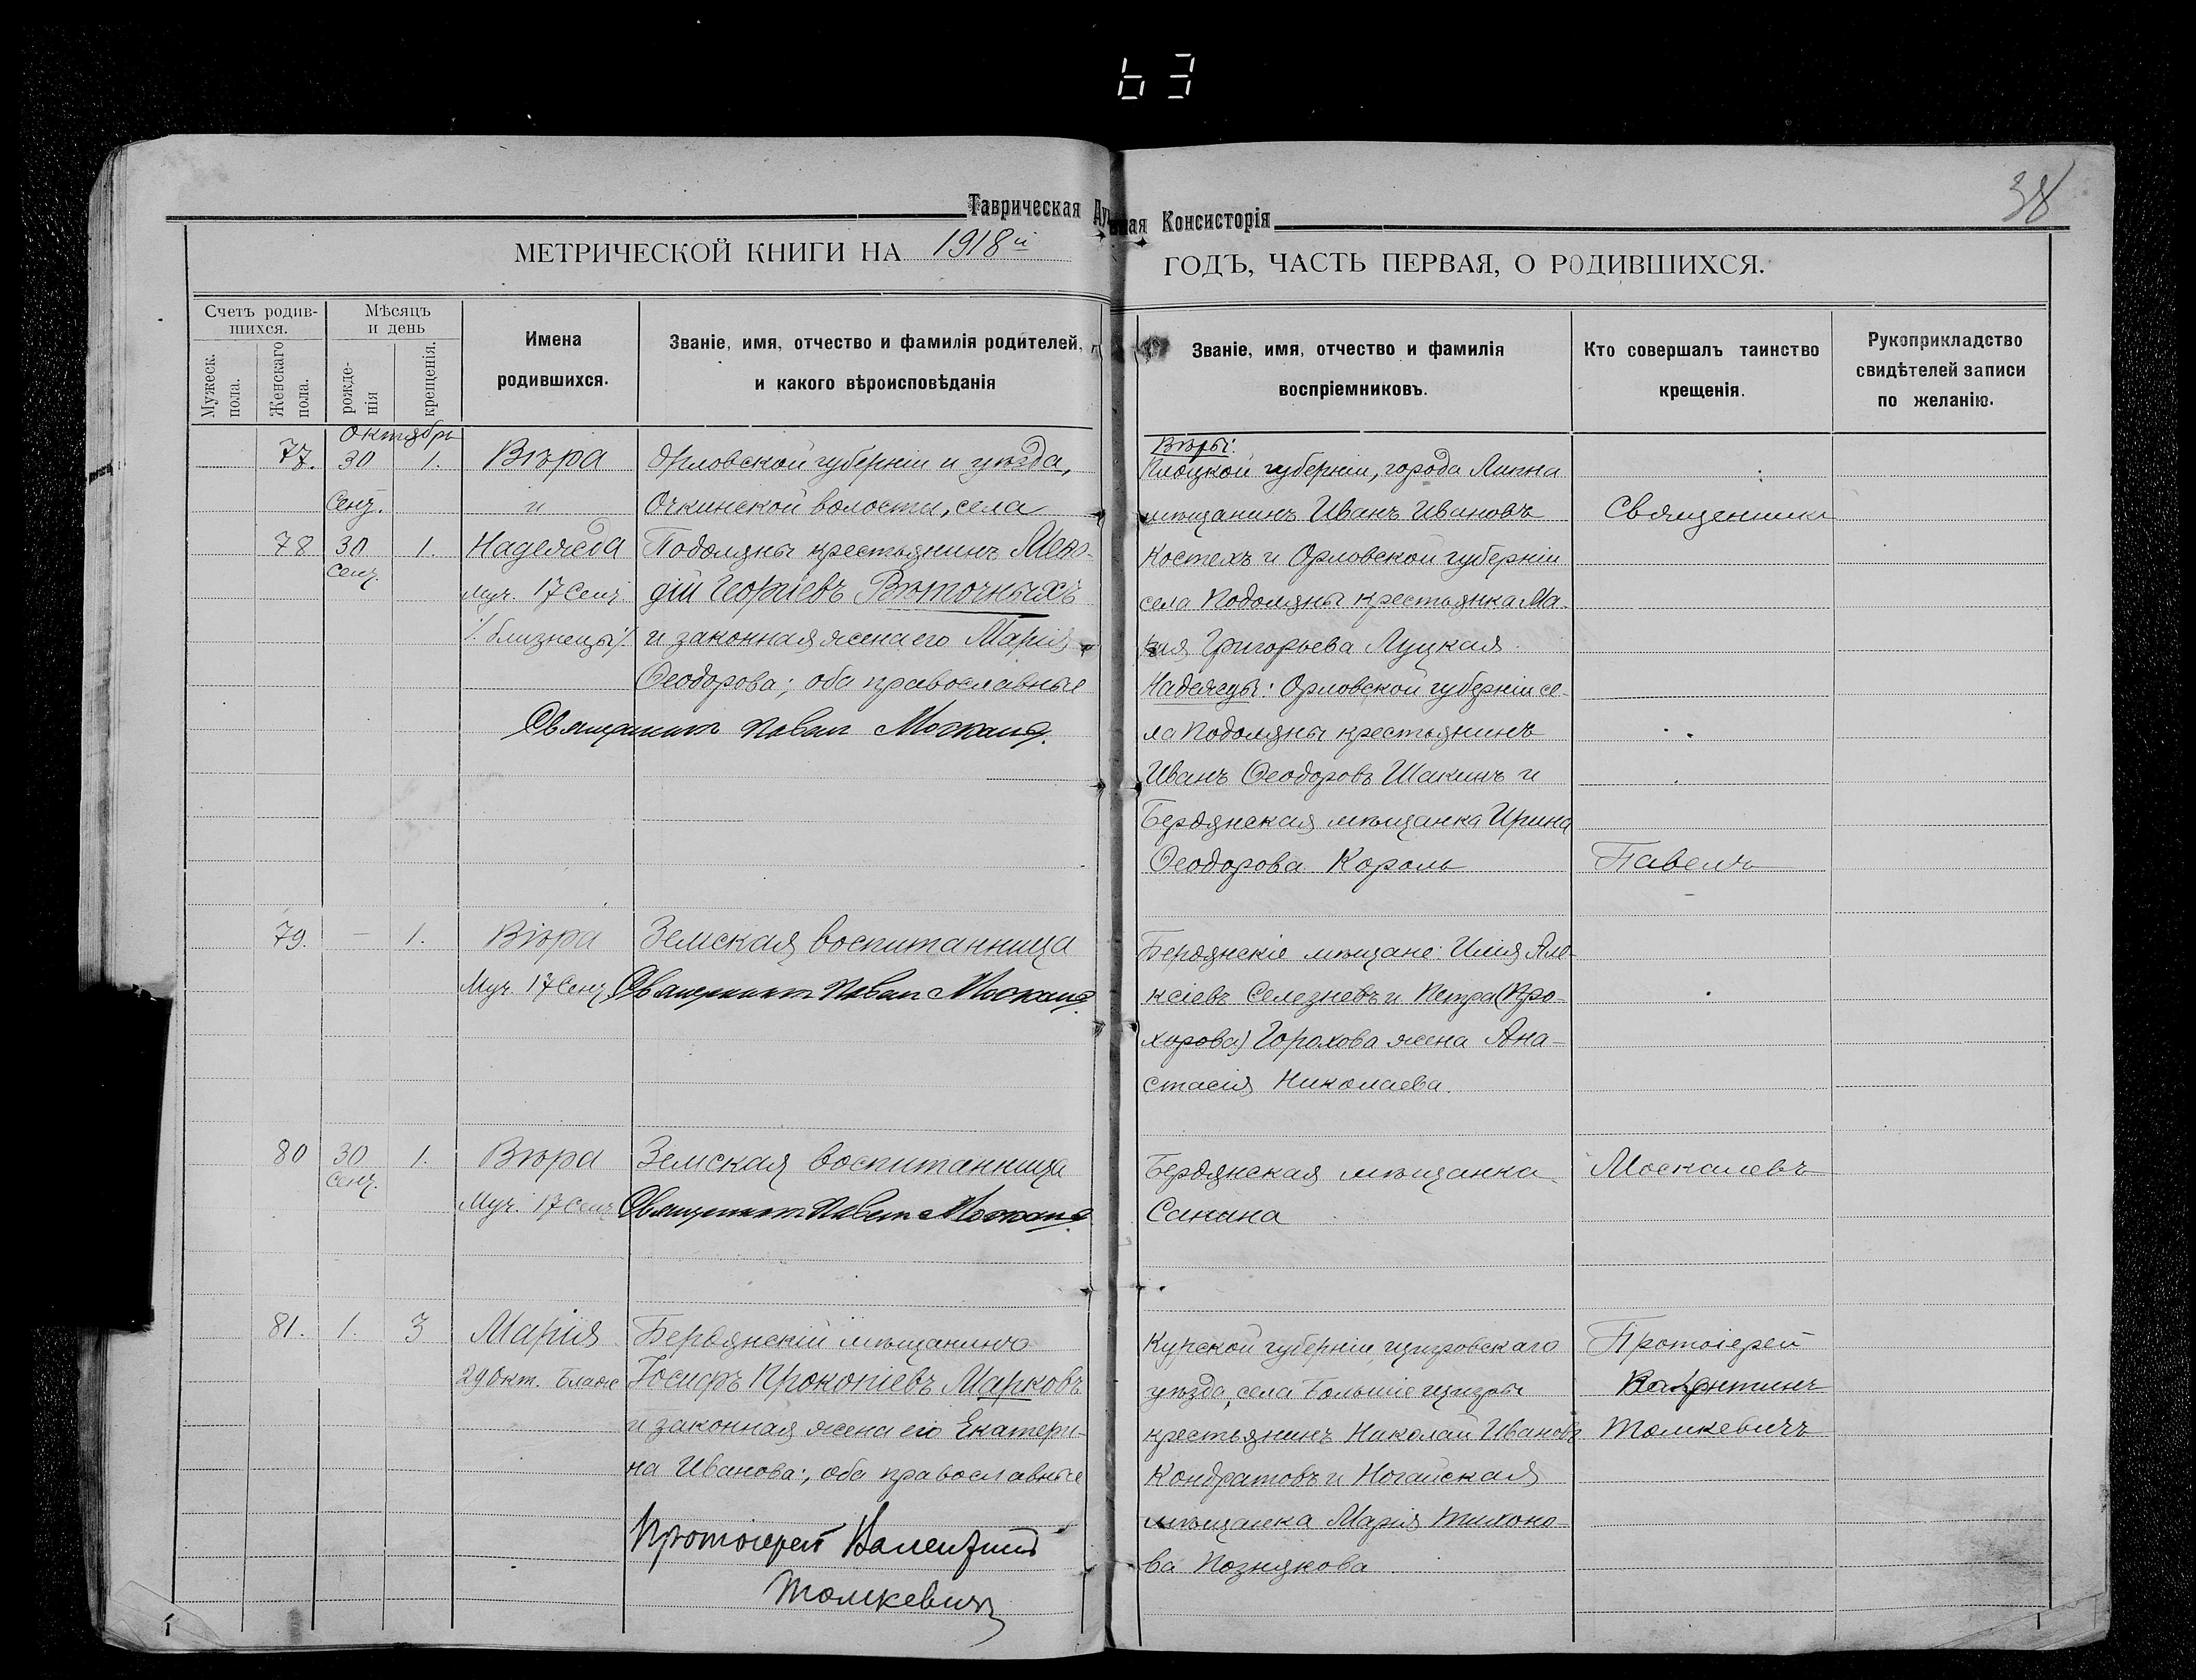 63
38
Таврическая Духовная Консисторія
МЕТРИЧЕСКОЙ КНИГИ НА 1918й ГОДЪ, ЧАСТЬ ПЕРВАЯ, О РОДИВШИХСЯ.
Счетъ родившихся.
Мужеск. пола.
Женскаго пола.
Мѣсяцъ и день
рожденія
крещенія.
Имена родившихся.
Званіе, имя, отчество и фамилія родителей, и какого вѣроисповѣданія
Званіе, имя, отчество и фамилія воспріемниковъ.
Кто совершалъ таинство крещенія.
Рукоприкладство свидѣтелей записи по желанію.
Октябрь
77. 30 1. Вѣра Орловской губерніи и уѣзда,
Сент. и Очкинской волости, села
78 30 1. Надежда Подоляны крестьянинъ Меѳо-
Сент.
Муч. 17 Сент. дій Георгіевъ Вѣточныхъ
/близнецы/. и законная жена его Марія
Ѳеодорова; оба православные
Священникъ Павел Москалев.
Вѣры:
Плоцкой губерніи, города Липна
мѣщанинъ Иванъ Ивановъ
Костехъ и Орловской губерніи
села Подоляны крестьянка Ма-
рія Григорьева Луцкая
Надежды: Орловской губерніи се-
ла Подоляны крестьянинъ
Иванъ Ѳеодоровъ Шакинъ и
Бердянская мѣщанка Ирина
Ѳеодорова Король
Священникъ
Павелъ
79. — 1. Вѣра Земская воспитанница
Муч. 17 Сент. Священникъ Павел Москалев
Бердянскіе мѣщане: Илія Але-
ксіевъ Селезневъ и Петра (Про-
хорова) Горохова жена Ана-
стасія Николаева.
80 30 1. Вѣра Земская воспитанница
Сент.
Муч. 17 Сент. Священникъ Павел Москалев
Бердянская мѣщанка
Санина
Москалевъ
81. 1. 3 Марія Бердянскій мѣщанинъ
29 Окт. Блаж Іосифъ Прокопіевъ Марковъ
и законная жена его Екатери-
на Иванова; оба православные
Протоіерей Валентинъ
Томкевичъ
Курской губерніи, щигровскаго
уѣзда, села Большіе щигры
крестьянинъ Николай Ивановъ
Кондратовъ и Ногайская
мѣщанка Марія Тихоно-
ва Познякова
Протоіерей
Валентинъ
Томкевичъ